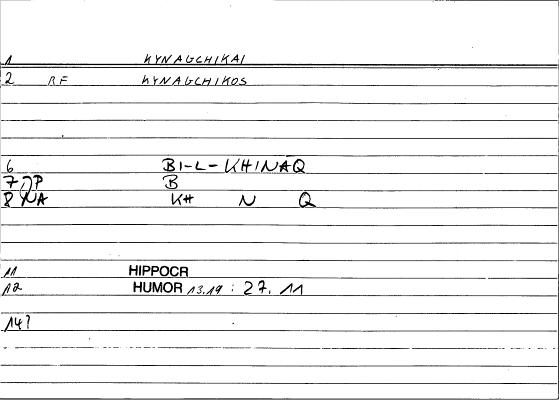 1 KYNAGCHIKAI
2 RF KYNAGCHIKOS
6 BI-L-KHINAQ
7 P B
8 NA KH N Q
11 HIPPOCR
12 HUMOR 13.19 : 27. 11
14?